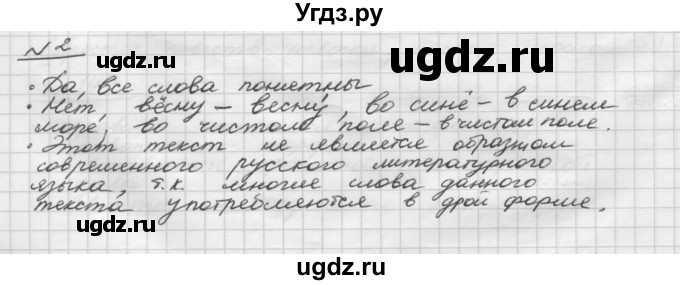 Угдз.ру
№2
ugdz.ru ugdz.ru
• Да, все слова понятны
• Нет, вёсну – весну, во синё – в синем
море, во чистом поле – в чистом поле.
• Этот текст не является образцом
современного русского литературного
языка, т.к. многие слова данного
текста употребляются в дрой форме.
ugdz.ru ugdz.ru
ugdz.ru